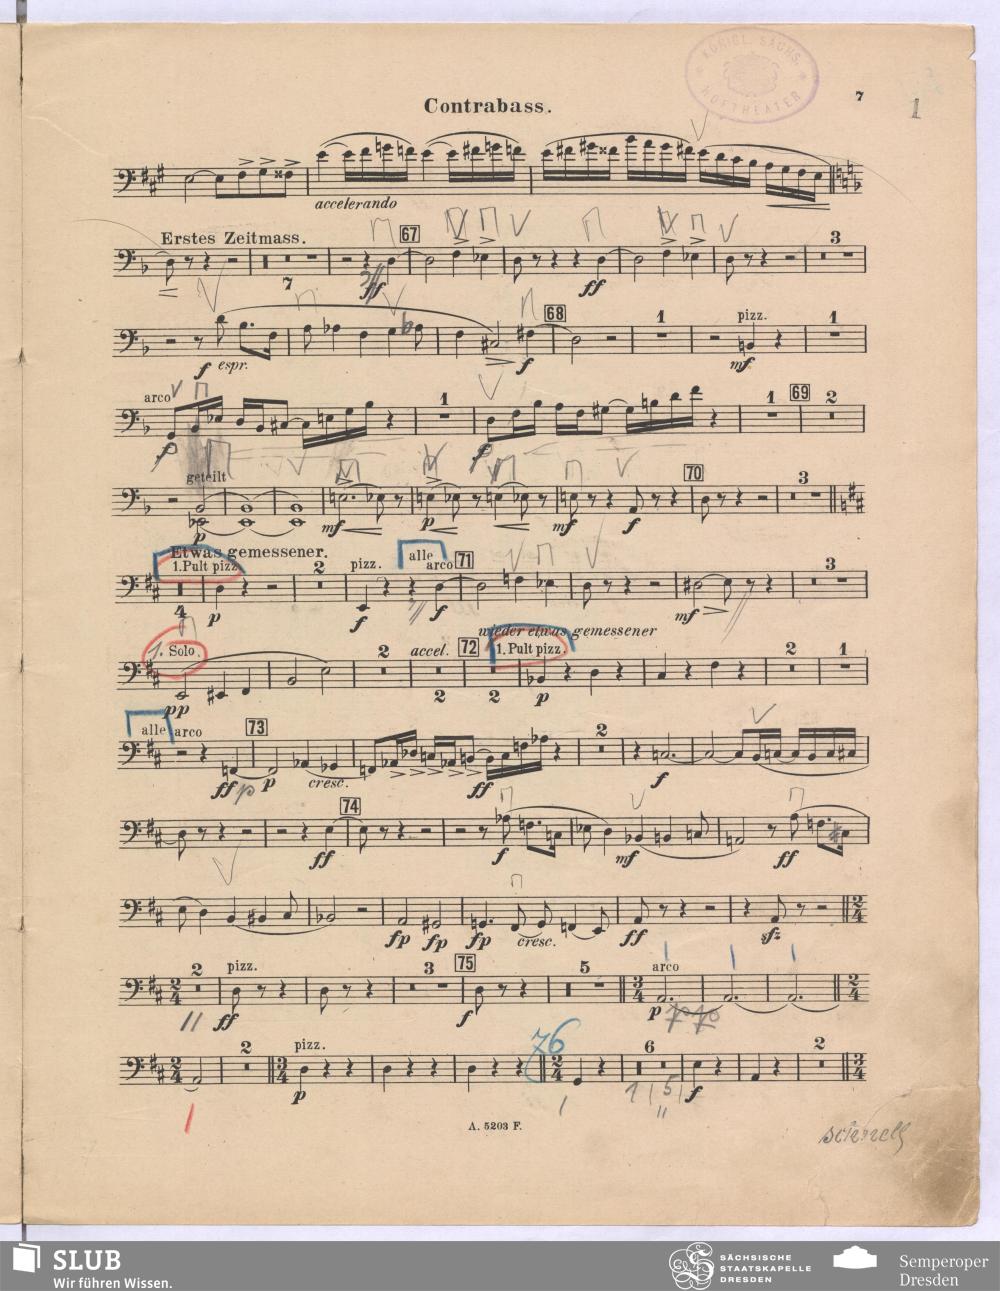 KÖNIGL. SÄCHS.
HOFTHEATER
7
1
Contrabass.
accelerando
Erstes Zeitmass.
67
3
7
ff
ff
68
1
pizz.
1
f espr.
f
mf
arco
1
1
69
2
f
f
geteilt
70
3
p
mf
p
mf
f
Etwas gemessener.
1. Pult pizz.
2
pizz.
alle
arco
71
3
4
p
f
f
mf
wieder etwas gemessener
1. Solo.
2
accel.
72
1. Pult pizz.
2
1
pp
2
2
p
alle arco
73
2
ff p
p
cresc.
ff
f
74
ff
f
mf
ff
fp
fp
fp
cresc.
ff
sfz
2
pizz.
3
75
5
arco
ff
f
p
2
pizz.
76
6
2
p
1 5
f
A. 5203 F.
schnell
SLUB
Wir führen Wissen.
SÄCHSISCHE
STAATSKAPELLE
DRESDEN
Semperoper
Dresden